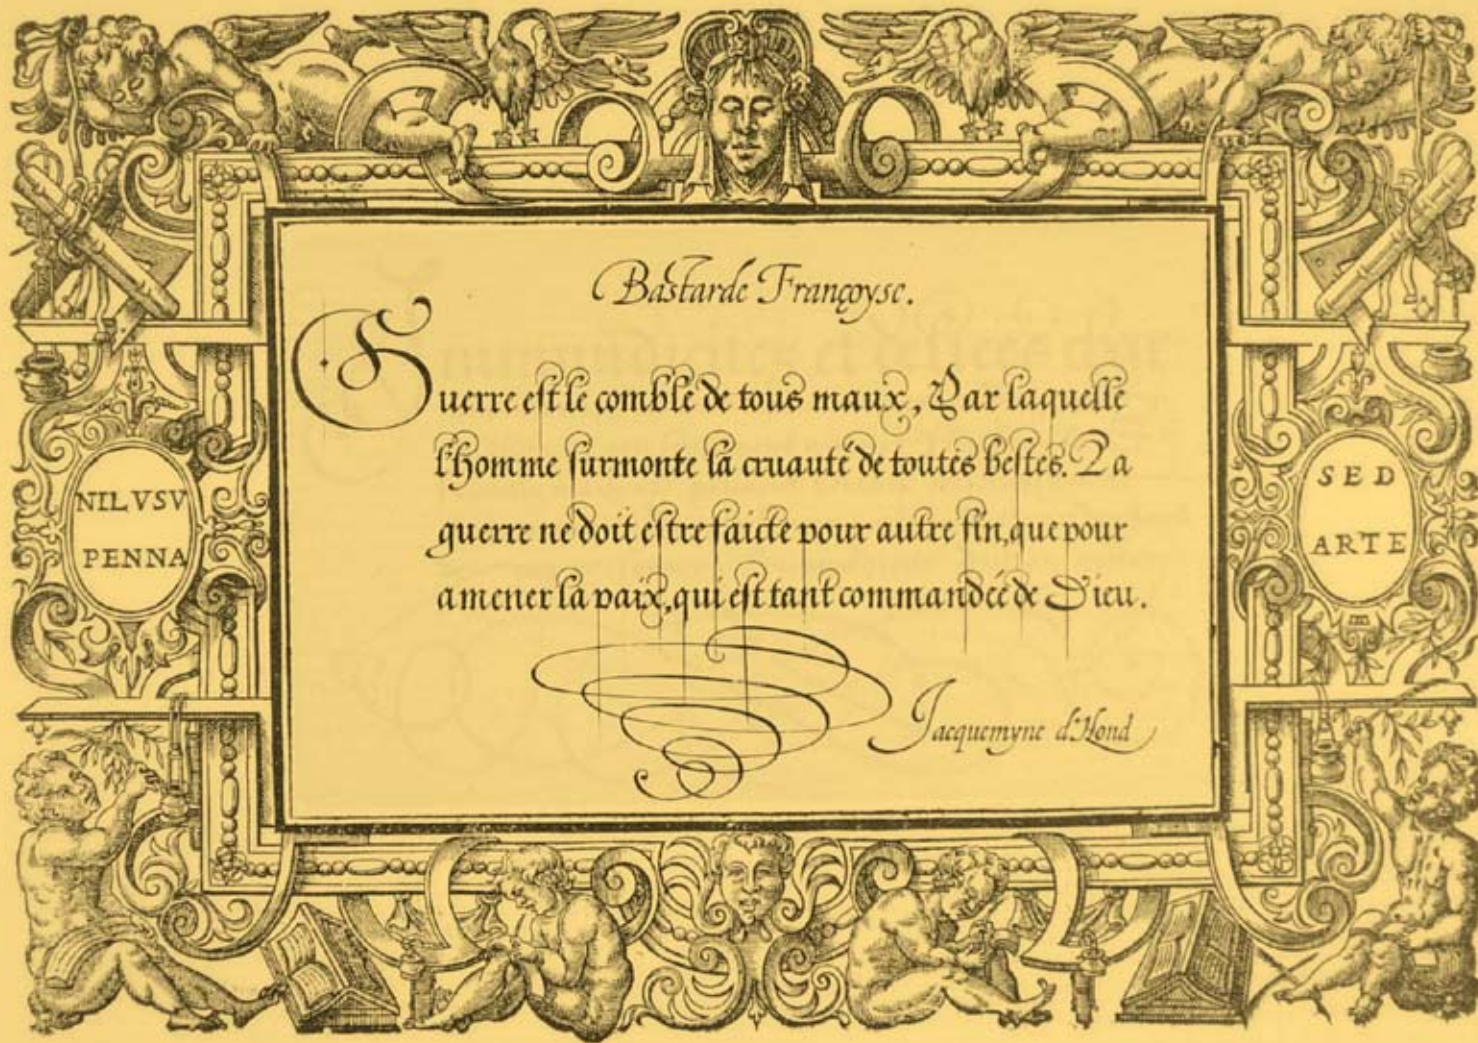 Bastarde Françoyse.
Guerre est le comble de tous maux, Par laquelle
l'homme surmonte la cruauté de toutes bestes. La
guerre ne doit estre faicte pour autre fin, que pour
amener la paix, qui est tant commandée de Dieu.
Jacquemyne d'Hond
NIL VSV
PENNA
SED
ARTE